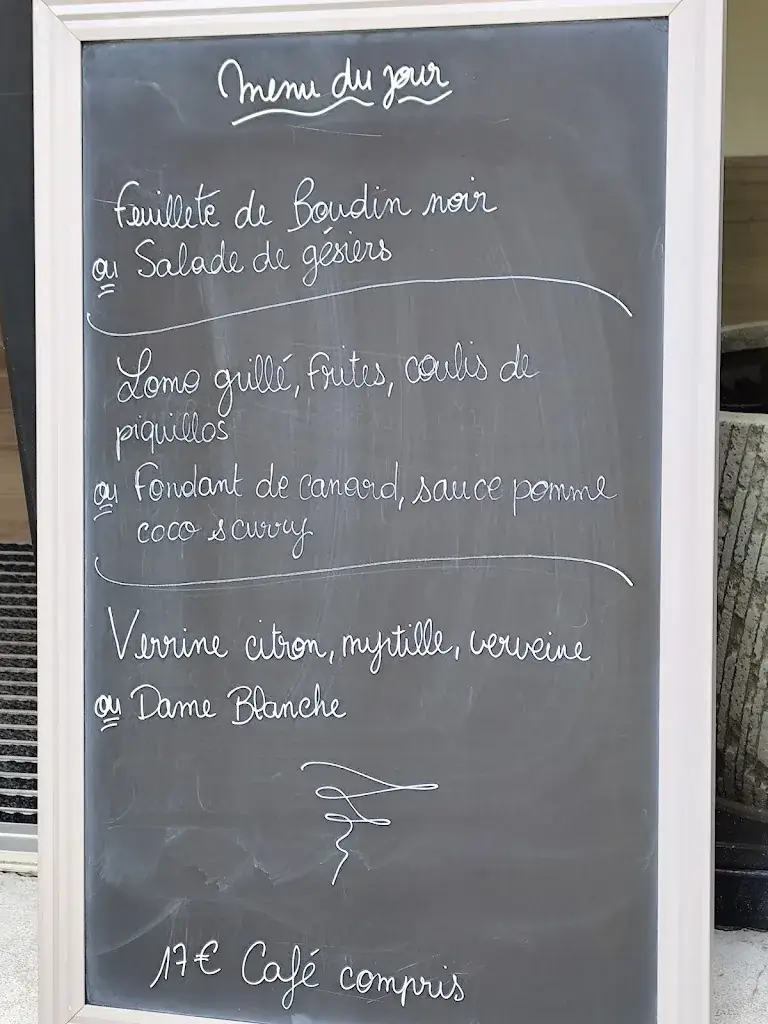 Menu du jour
Feuilleté de Boudin noir
ou Salade de gésiers
Lomo grillé, frites, coulis de
piquillos
ou Fondant de canard, sauce pomme
coco scurry
Verrine citron, myrtille, verveine
ou Dame Blanche
17€ Café compris